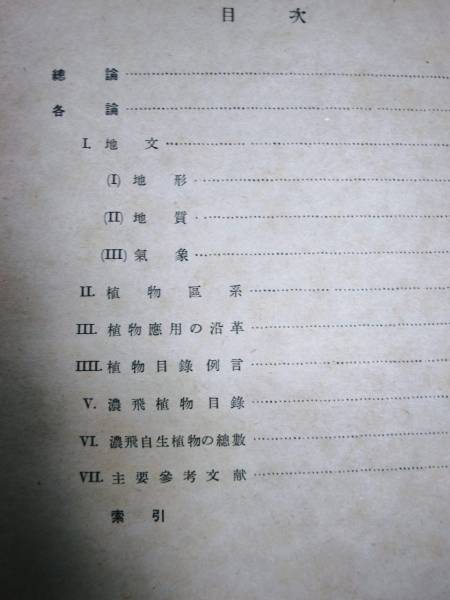 目次
總論
各論
I. 地文
(I) 地形
(II) 地質
(III) 氣象
II. 植物區系
III. 植物應用の沿革
IIII. 植物目錄例言
V. 濃飛植物目錄
VI. 濃飛自生植物の總數
VII. 主要參考文献
索引